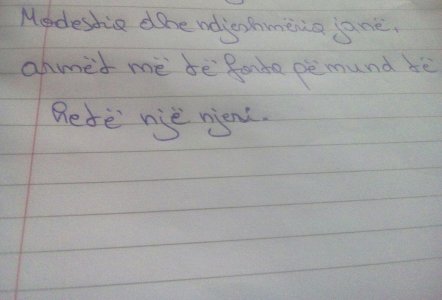 Modestia dhe ndjeshmëria janë,
armët më të forta që mund të
ketë një njeri.